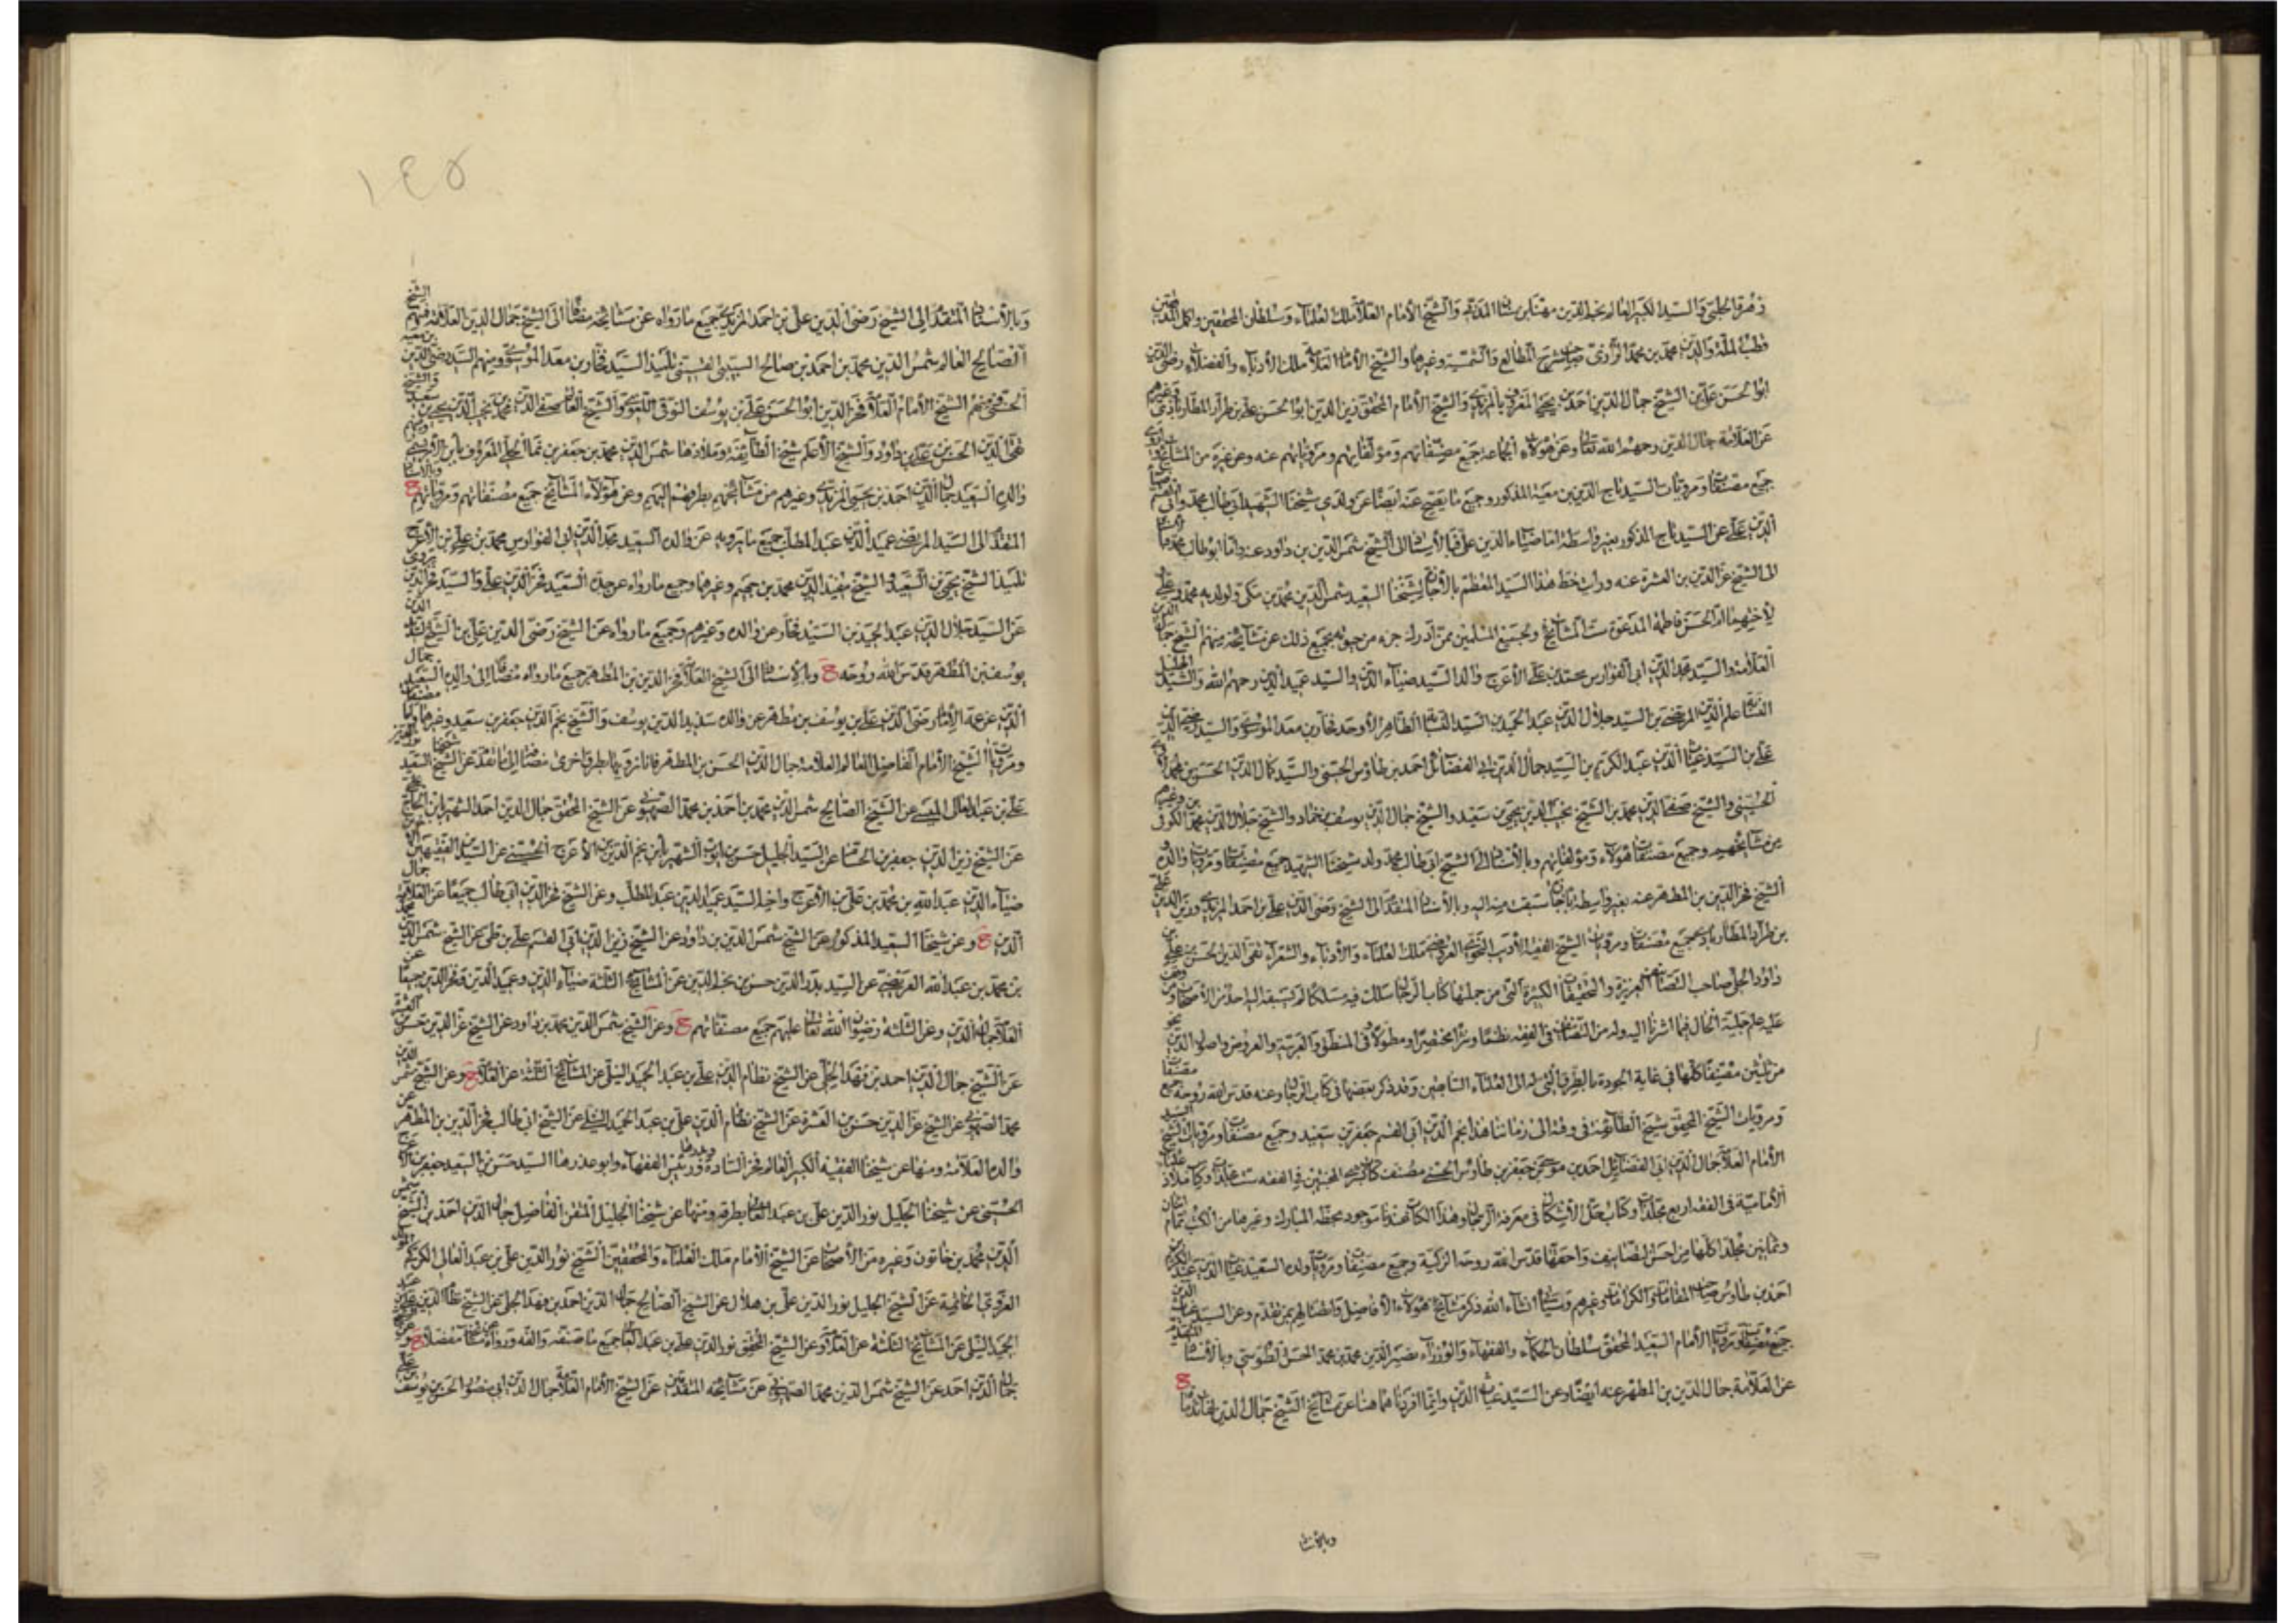 زهرة الحلبي والسيد الكبير العالم نجم الدين مهنا بن سنان المدني والشيخ الامام العلامة ملك العلماء وسلطان المحققين واكمل المدققين
قطب الملة والدين محمد بن محمد الرازي صاحب شرح المطالع والشمسية وغيرهما والشيخ الامام العلامة ملك الادباء والفضلاء رضي الدين
ابو الحسن علي بن الشيخ جمال الدين احمد بن يحيى المعروف بالمزيدي والشيخ الامام المحقق زين الدين ابو الحسن علي بن طراد المطارباذي وغيرهم
عن العلامة جمال الدين رحمهم الله تعالى وعن هؤلاء الجماعة جميع مصنفاتهم ومؤلفاتهم ومروياتهم عنه وعن غيره من المشايخ
جميع مصنفات ومرويات السيد تاج الدين بن معية المذكور وجميع ما يصح عنه ايضا عن ولدي شيخنا الشهيد ابي طالب محمد وابي القسم
الدين علي عن السيد تاج المذكور بغير واسطة اما ضياء الدين علي فبالاسناد الى الشيخ شمس الدين بن داود عنه واما ابو طالب محمد
الى الشيخ عز الدين بن العشرة عنه ورايت خط هذا السيد المعظم بالاجازة لشيخنا السعيد شمس الدين محمد بن مكي ولولديه محمد وعلي
لاختهما ام الحسن فاطمة المدعوة ست المشايخ ولجميع المسلمين ممن ادرك جزء من حيوته بجميع ذلك عن مشايخه منهم الشيخ جمال الدين
العلامة والسيد مجد الدين ابي الفوارس محمد بن علي الاعرج والد السيد ضياء الدين والسيد عميد الدين رحمهم الله والسيد الجليل
النسابة علم الدين المرتضى بن السيد جلال الدين عبد الحميد بن السيد النسابة الطاهر الاوحد فخار بن معد الموسوي والسيد رضي الدين
علي بن السيد غياث الدين عبد الكريم بن السيد جمال الدين ابي الفضائل احمد بن طاوس الحسني والسيد كمال الدين الحسن بن محمد
الحسيني والشيخ صفي الدين محمد بن الشيخ نجيب الدين يحيى بن سعيد والشيخ جمال الدين يوسف بن حماد والشيخ جلال الدين محمد الكوفي وغيرهم
من مشايخهم وجميع مصنفات هؤلاء ومؤلفاتهم وبالاسناد الى الشيخ ابي طالب محمد ولد شيخنا الشهيد جميع مصنفات ومرويات والده
الشيخ فخر الدين بن المطهر عنه بغير واسطة باجازة سبقت منه اليه وبالاسناد المتقدم الى الشيخ رضي الدين علي بن احمد المزيدي وزين الدين علي
بن طراد المطارباذي جميع مصنفات ومرويات الشيخ الفقيه الاديب النحوي العروضي ملك العلماء والادباء والشعراء تقي الدين الحسن بن علي بن
داود الحلي صاحب التصانيف الغزيرة والتحقيقات الكثيرة التي من جملتها كتاب الرجال سلك فيه مسلكا لم يسبقه اليه احد من الاصحاب ومن وقف
عليه علم جلية الحال فيما اشرنا اليه وله من التصانيف في الفقه نظما ونثرا مختصرا ومطولا وفي المنطق والعربية والعروض واصول الدين نحو
من ثلثين مصنفا كلها في غاية الجودة بالطرق التي له الى العلماء السابقين وقد ذكر بعضها في كتاب الرجال وعنه قدس الله روحه جميع مصنفات
ومرويات الشيخ المحقق شيخ الطائفة في وقته الى زماننا هذا نجم الدين ابي القسم جعفر بن سعيد وجميع مصنفات ومرويات الشيخ السيد
الامام العلامة جمال الدين ابي الفضائل احمد بن موسى بن جعفر بن طاوس الحسني مصنف كتاب بشرى المحققين في الفقه ست مجلدات وكتاب ملاذ علماء
الامامية في الفقه اربع مجلدات وكتاب حل الاشكال في معرفة الرجال وهذا الكتاب عندنا موجود بخطه المبارك وغيرها من الكتب تمام اثنان
وثمانين مجلدا كلها من احسن التصانيف واحقها قدس الله روحه الزكية وجميع مصنفات ومرويات ولده السعيد غياث الدين عبد الكريم بن
احمد بن طاوس صاحب المقامات والكرامات وغيرهم وسياتي انشاء الله ذكر مشايخ هؤلاء الافاضل واتصالهم بمن تقدم وعن السيد غياث الدين
جميع مصنفات ومرويات الامام السعيد المحقق سلطان الحكماء والفقهاء والوزراء نصير الدين محمد بن محمد الحسن الطوسي وبالاسناد المتقدم
عن العلامة جمال الدين بن المطهر عنه ايضا وعن السيد غياث الدين وانما افردنا هما هنا عن مشايخ الشيخ جمال الدين لفائدة ما
وبالاسناد
١٤٥
وبالاسناد المتقدم الى الشيخ رضي الدين علي بن احمد المزيدي جميع ما رواه عن مشايخه مضافا الى الشيخ جمال الدين العلامة فمنهم الشيخ
الصالح العالم شمس الدين محمد بن احمد بن صالح السيبي القسيني تلميذ السيد فخار بن معد الموسوي ومنهم السيد رضي الدين بن معية
الحسني ومنهم الشيخ الامام العلامة فخر الدين ابو الحسن علي بن يوسف البوقي اللغوي والشيخ العالم صفي الدين محمد بن نجيب الدين يحيى بن سعيد والشيخ
تقي الدين الحسن بن علي بن داود والشيخ الاعلم شيخ الطائفة وملاذها شمس الدين محمد بن جعفر بن نما الحلي المعروف بابن الابريسمي ومنهم
والده السعيد جمال الدين احمد بن يحيى المزيدي وغيرهم من مشايخهم بطرقهم اليهم وعن هؤلاء المشايخ جميع مصنفاتهم ومروياتهم وبالاسناد
المتقدم الى السيد المرتضى عميد الدين عبد المطلب جميع ما يرويه عن والده السعيد مجد الدين ابي الفوارس محمد بن علي بن الاعرج
تلميذ الشيخ يحيى بن السعيد والشيخ مفيد الدين محمد بن جهيم وغيرهما وجميع ما رواه عن جده السعيد فخر الدين علي والسيد فخر الدين يروي
عن السيد جلال الدين عبد الحميد بن السيد فخار عن والده وغيرهم وجميع ما رواه عن الشيخ رضي الدين علي بن الشيخ سديد الدين
يوسف بن المطهر قدس الله روحه وبالاسناد الى الشيخ العلامة فخر الدين بن المطهر جميع ما رواه مضافا الى والده السعيد جمال
الدين عن عمه الامام رضي الدين علي بن يوسف بن مطهر عن والده سديد الدين يوسف والشيخ نجم الدين جعفر بن سعيد وغيرهما واما مصنفات
ومرويات الشيخ الامام الفاضل العالم العلامة جمال الدين الحسن بن المطهر فانا نرويها بطرق اخرى مضافا الى ما تقدم عن الشيخ السعيد شيخنا نور الدين
علي بن عبد العالي الميسي عن الشيخ الصالح شمس الدين محمد بن احمد بن محمد الصهيوني عن الشيخ المحقق جمال الدين احمد الشهير بابن الحاج علي
عن الشيخ زين الدين جعفر بن الحسام عن السيد الجليل حسن بن ايوب الشهير بابن نجم الدين بن الاعرج الحسيني عن السيدين الفقيهين
ضياء الدين عبد الله بن محمد بن علي بن الاعرج واخيه السيد عميد الدين عبد المطلب وعن الشيخ فخر الدين ابي طالب جميعا عن العلامة جمال
الدين وعن شيخنا السعيد المذكور عن الشيخ شمس الدين بن داود عن الشيخ زين الدين ابي القسم علي بن طي عن الشيخ شمس الدين محمد
بن محمد بن عبد الله العريضي عن السيد بدر الدين حسن بن نجم الدين عن المشايخ الثلثة ضياء الدين وعميد الدين وفخر الدين جميعا عن
العلامة جمال الدين وعن الثلثة رضوان الله تعالى عليهم جميع مصنفاتهم وعن الشيخ شمس الدين محمد بن داود عن الشيخ عز الدين حسن العشرة
عن الشيخ جمال الدين احمد بن فهد الحلي عن الشيخ نظام الدين علي بن عبد الحميد النيلي عن المشايخ الثلثة عن العلامة وعن الشيخ شمس الدين
محمد الصهيوني عن الشيخ عز الدين حسن بن العشرة عن الشيخ نظام الدين علي بن عبد الحميد النيلي عن الشيخ ابي طالب فخر الدين بن المطهر عن
والده العلامة ومنها عن شيخنا الفقيه الكبير العالم فخر السادة وبدرها ورئيس الفقهاء وابو عذرها السيد حسن بن السيد جعفر بن الاعرج
الحسيني عن شيخنا الجليل نور الدين علي بن عبد العالي بطرقه ومنها عن شيخنا الجليل المتقن الفاضل جمال الدين احمد بن الشيخ شمس
الدين محمد بن خاتون وغيره من الاصحاب عن الشيخ الامام ملك العلماء والمحققين الشيخ نور الدين علي بن عبد العالي الكركي المولد
الغروي الخاتمة عن الشيخ الجليل نور الدين علي بن هلال عن الشيخ الصالح جمال الدين احمد بن فهد الحلي عن الشيخ نظام الدين علي بن عبد
الحميد النيلي عن المشايخ الثلثة عن العلامة وعن الشيخ المحقق نور الدين علي بن عبد العالي جميع ما صنفه والفه ورواه عن مشايخه مفصلا وعن
جمال الدين احمد عن الشيخ شمس الدين محمد الصهيوني عن مشايخه المتقدمين عن الشيخ الامام العلامة جمال الدين ابي منصور الحسن بن يوسف بن علي